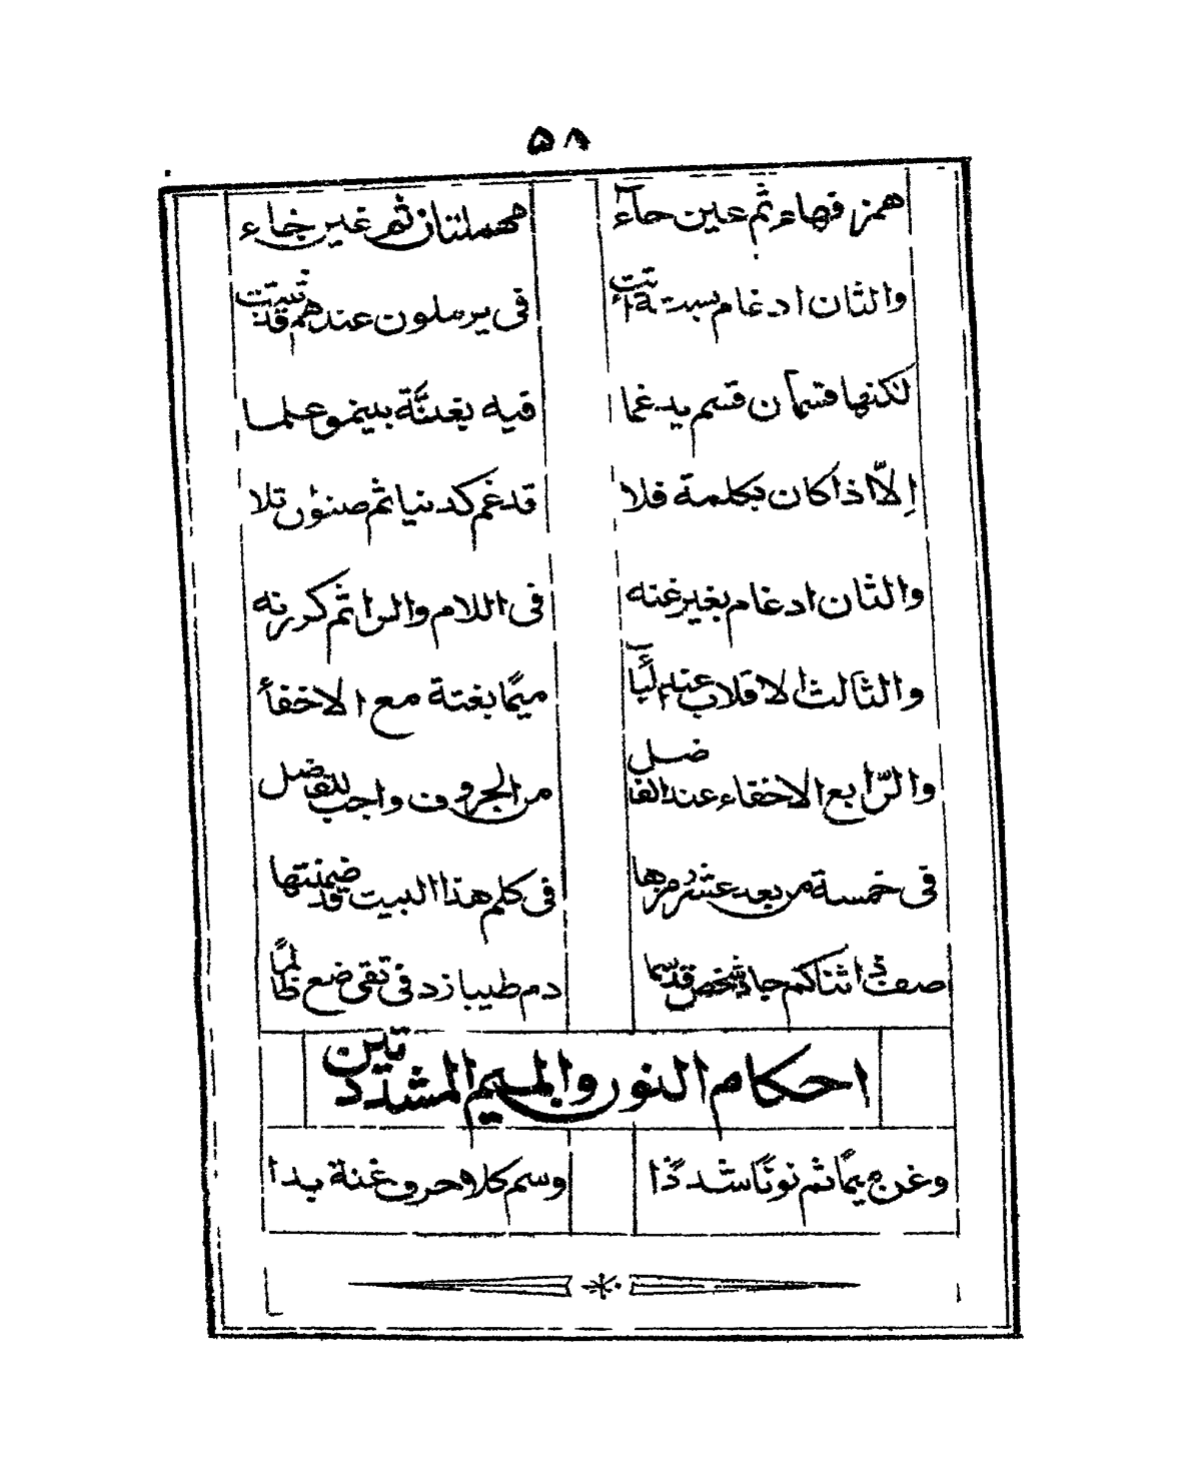 ٥٨
همز فهاء ثم عين حاء مهملتان ثم غين خاء
والثان ادغام بستة اتت في يرملون عندهم قد ثبتت
لكنها قسمان قسم يدغما فيه بغنة بينمو علما
إلا اذا كان بكلمة فلا تدغم كدنيا ثم صنوان تلا
والثان ادغام بغير غنه في اللام والرا ثم كررنه
والثالث الاقلاب عند البا ميمًا بغنة مع الاخفأ
والرّابع الاخفاء عند الفاضل من الحروف واجب للفاضل
في خمسة من بعد عشر رمزها في كلم هذا البيت قد ضمنتها
صف ذا ثنا كم جاد شخص قد سما دم طيبا زد في تقى ضع ظالمًا
احكام النون والميم المشددتين
وغن ميمًا ثم نونًا شددًا وسم كلا حرف غنة بدا